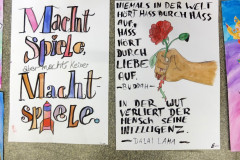 Macht
Spiele,
aber macht keine
Macht-
spiele.
NIEMALS IN DER WELT
HÖRT HASS DURCH HASS
AUF.
HASS
HÖRT
DURCH
LIEBE
AUF.
BUDDHA
IN DER WUT
VERLIERT DER
MENSCH SEINE
INTELLIGENZ
DALAI LAMA